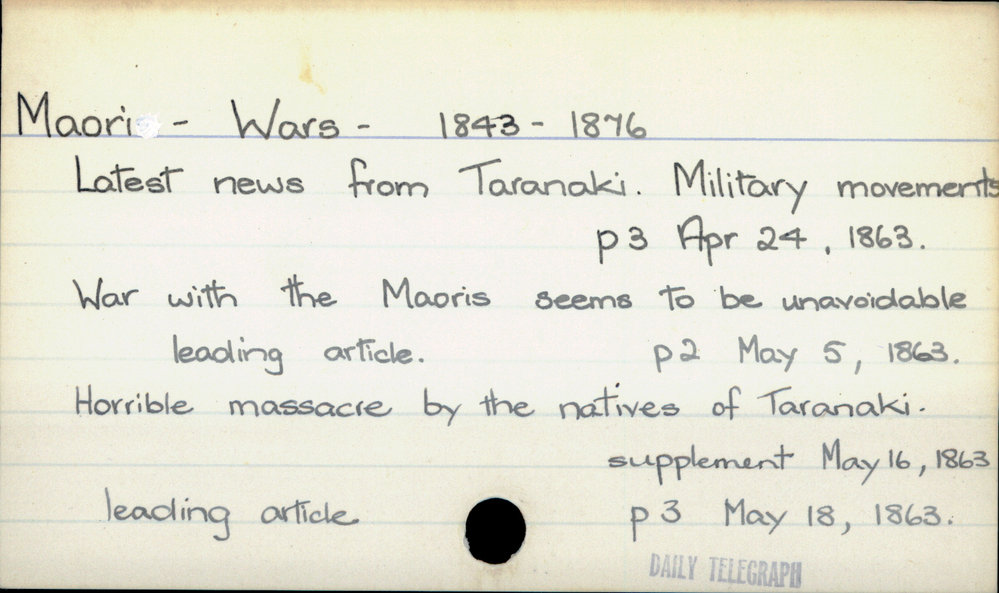 Maori - Wars - 1843 - 1876
Latest news from Taranaki. Military movements
p3 Apr 24, 1863.
War with the Maoris seems to be unavoidable
leading article. p2 May 5, 1863.
Horrible massacre by the natives of Taranaki.
supplement May 16, 1863
leading article p3 May 18, 1863.
DAILY TELEGRAPH